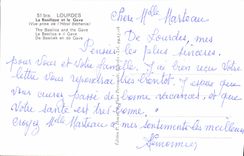 51 bis LOURDES
La Basilique et le Gave
(Vue prise de l'Hôtel Béthanie)
The Basilica and the Gave
La Basilica e il Gave
De Basiliek en de Gave
Chère Mlle Marteau
De Lourdes, mes
Pensées les plus sincères
pour vous et votre famille. J'ai bien reçu votre
lettre vous répondrai très bientôt. J'espère que
vous aurez passé de bonnes vacances, et que
votre santé est très bonne,
croyez Mlle Marteau à mes sentiments les meilleurs